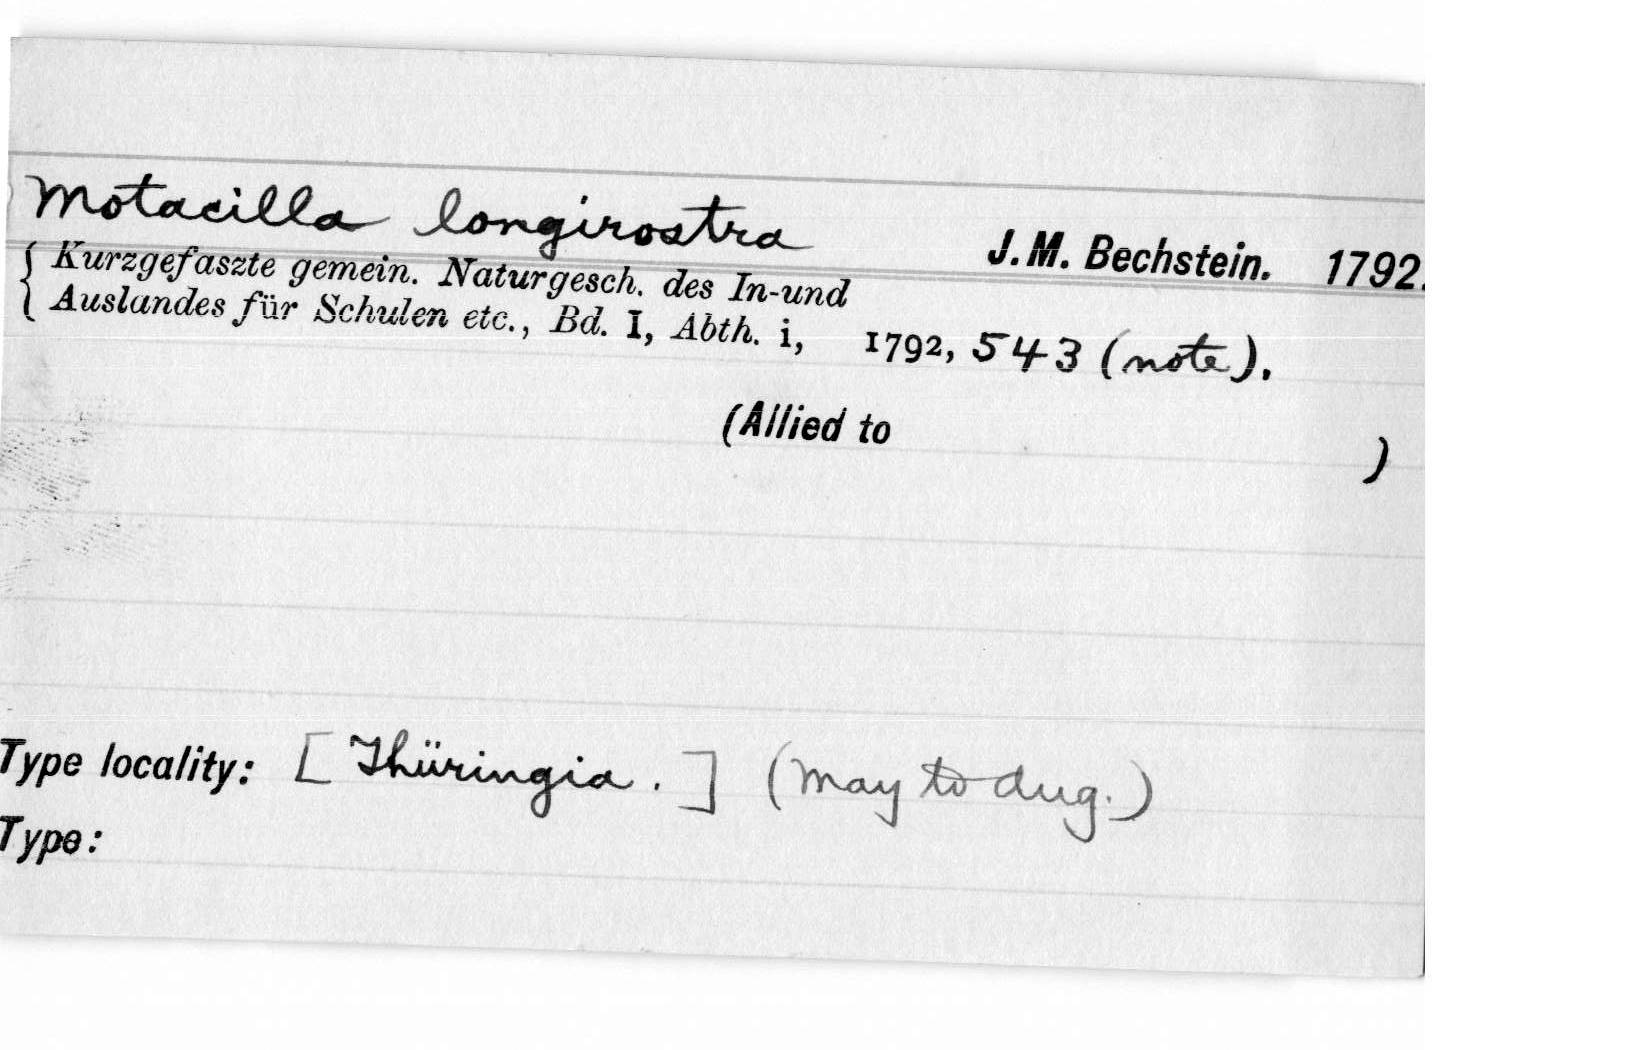 Motacilla longirostra
J. M. Bechstein. 1792.
Kurzgefaszte gemein. Naturgesch. des In-und
Auslandes für Schulen etc., Bd. I, Abth. i, 1792, 543 (note).
(Allied to )
Type locality: [Thüringia.] (May to Aug.)
Type: